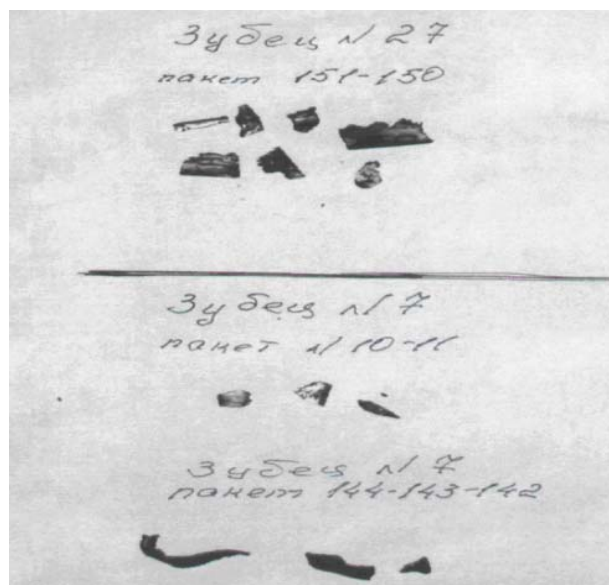 Зубец N 27
пакет 151-150
Зубец N 7
пакет N 10-11
Зубец N 7
пакет 144-143-142